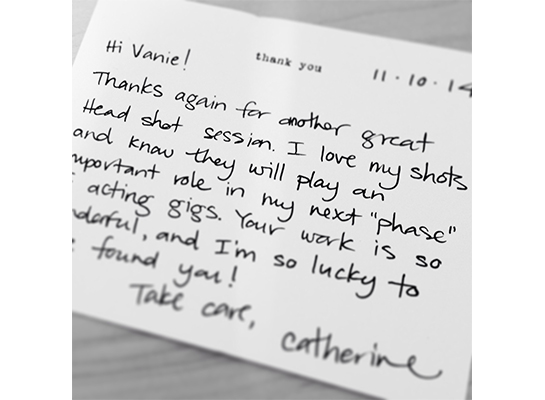 Hi Vanie!
thank you
11·10·14
Thanks again for another great
Head shot session. I love my shots
and know they will play an
mportant role in my next "phase"
acting gigs. Your work is so
nderful, and I'm so lucky to
found you!
Take care,
Catherine